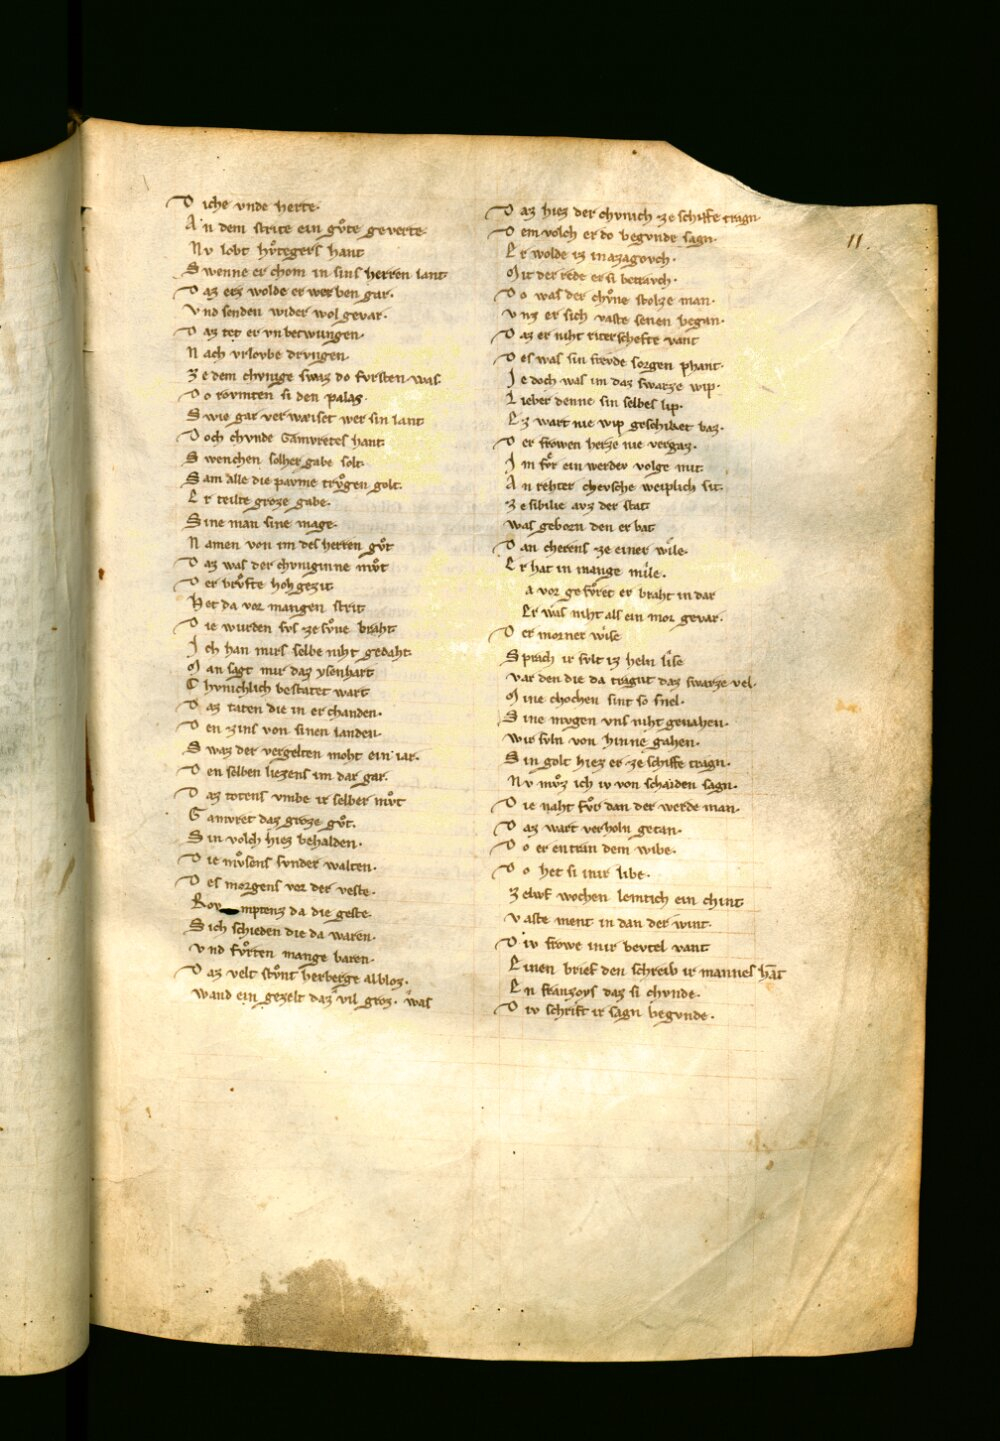 D iche vnde herte.
A n dem strite ein gůte geverte.
N v lobt hůtegers hant
S wenne er chom in sins herren lant
D az erz wolde er werben gar.
V nd senden wider wol gevar.
D az tet er vnbetwungen.
N ach vrlovbe drvngen.
Z e dem chvnige swaz do fvrsten was.
D o rovmten si den palas.
S wie gar verwæiset wer sin lant
D och chvnde Gamvretes hant
S wenchen solher gabe solt.
S am alle die pavme trůgen golt.
E r teilte groze gabe.
S ine man sine mage.
N amen von im des herren gůt
D az was der chvniginne mvͦt
D er brůfte hohgezit
H et da vor mangen strit
D ie wurden svs ze sůne braht
I ch han mirs selbe niht gedaht.
M an sagt mir daz ysenhart
C hvnichlich bestatet wart
D az taten die in erchanden.
D en zins von sinen landen.
S waz der vergelten moht ein iar.
D en selben liezens im dar gar.
D az totens vmbe ir selber mvͦt
G amvret daz groze gůt.
S in volch hiez behalden.
D ie můsens svnder walten.
D es morgens vor der veste.
R ov mptenz da die geste
S ich schieden die da waren.
V nd fůrten mange baren.
D az velt stůnt herberge albloz.
wand ein gezelt daz vil groz. was
D az hiez der chvnich ze schiffe tragn.
D em volch er do begvnde sagn.
E r wolde iz in azagovch.
M it der rede er si betravch.
D o was der chůne stolze man.
V nz er sich vaste senen began.
D az er niht riterschefte vant
D es was sin frevde sorgen phant.
I e doch was im daz swarze wip.
L ieber denne sin selbes lip.
E z wart nie wip geschiket baz.
D er frowen herze nie vergaz.
I m fůr ein werder volge mit
A n rehter chevsche weiplich sit.
Z e sibilie avz der stat
was geborn den er bat
D an cherens ze einer wile.
E r hat in mange mile.
a vor gefůret er braht in dar
E r was niht als ein mor gevar.
D er morner wise
S prach ir svlt iz heln lise
var den die da tragnt daz swarze vel.
M ine chochen sint so snel.
S ine mvgen vns niht genahen.
wir svln von hinne gahen.
S in golt hiez er ze schiffe tragn.
N v můz ich iv von schaiden sagn.
D ie naht fůr dan der werde man.
D az wart verholn getan.
D o er entran dem wibe.
D o het si inir libe.
Z elwf wochen lemtich ein chint
V aste ment in dan der wint.
D iv frowe inir bevtel vant
E inen brief den schreib ir mannes hāt
E n franzoys daz si chvnde.
D iv schrift ir sagn begvnde.
11